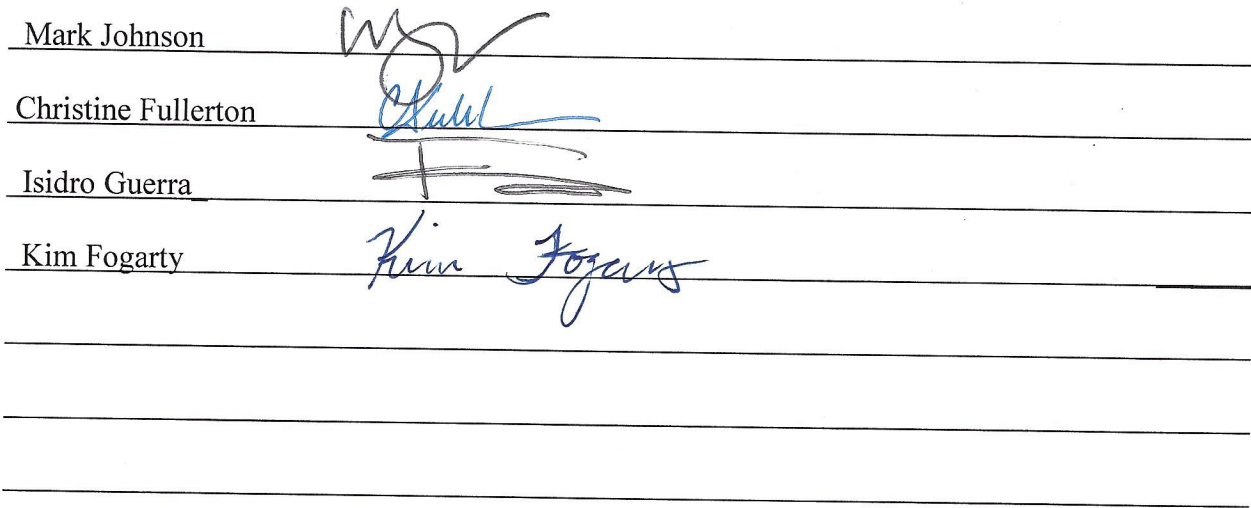 Mark Johnson
Christine Fullerton
Isidro Guerra
Kim Fogarty Kim Fogarty